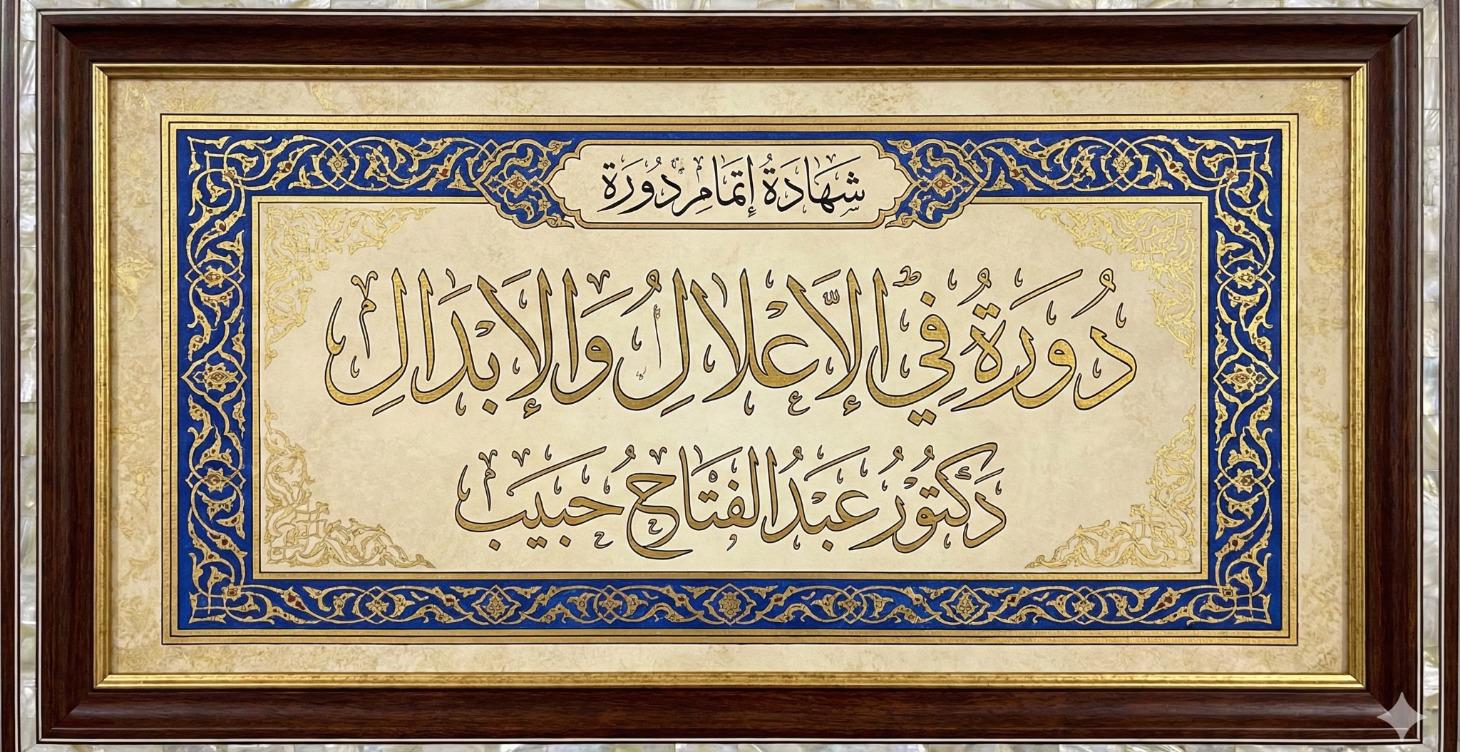 شَهَادَةُ إِتْمَامِ دُورَة
دُورَةُ فِي الإِعْلَالِ وَالإِبْدَالِ
دَكْتُورُ عَبْدُ الفَتَّاحُ حَبِيب